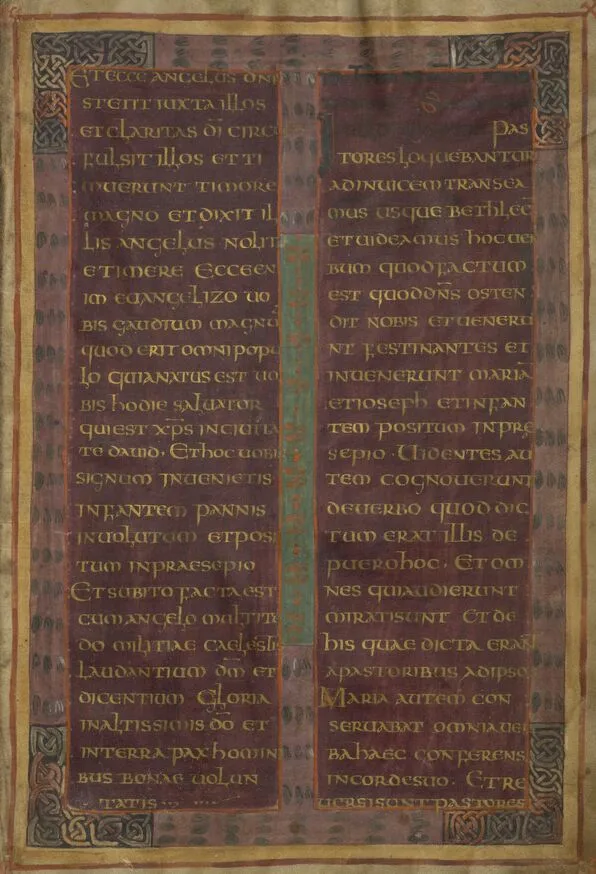 Et ecce angelus dni
stetit iuxta illos
et claritas di circu
fulsit illos et ti
muerunt timore
magno et dixit il
lis angelus nolit
e timere Ecce en
im euangelizo uo
bis gaudium magnu
quod erit omni popu
lo quia natus est uo
bis hodie saluator
qui est xps in ciuita
te dauid. Et hoc uobis
signum Inuenietis
infantem pannis
inuolutum et posi
tum in praesepio
Et subito facta est
cum angelo multitu
do militiae caelestis
laudantium dm et
dicentium Gloria
in altissimis do et
in terra pax homin
bus bonae uolun
tatis
Pas
tores loquebantur
ad inuicem transea
mus usque bethlee
et uideamus hoc uer
bum quod factum
est quod dns osten
dit nobis et ueneru
nt festinantes et
inuenerunt maria
et ioseph et infan
tem positum in pre
sepio. Uidentes au
tem cognouerunt
de uerbo quod dic
tum erat illis de
puero hoc. Et om
nes qui audierunt
mirati sunt Et de
his quae dicta erant
a pastoribus ad ipso
Maria autem con
seruabat omnia uer
ba haec conferens
in corde suo. Et re
uersi sunt pastores